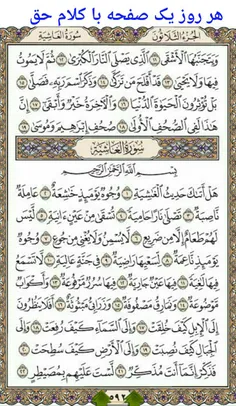 هر روز یک صفحه با کلام حق
الجزء الثلاثون سورة الغاشية
وَيَتَجَنَّبُهَا الْأَشْقَى ١١ الَّذِي يَصْلَى النَّارَ الْكُبْرَىٰ ١٢ ثُمَّ لَا يَمُوتُ
فِيهَا وَلَا يَحْيَىٰ ١٣ قَدْ أَفْلَحَ مَنْ تَزَكَّىٰ ١٤ وَذَكَرَ اسْمَ رَبِّهِ فَصَلَّىٰ ١٥
بَلْ تُؤْثِرُونَ الْحَيَاةَ الدُّنْيَا ١٦ وَالْآخِرَةُ خَيْرٌ وَأَبْقَىٰ ١٧ إِنَّ
هَٰذَا لَفِي الصُّحُفِ الْأُولَىٰ ١٨ صُحُفِ إِبْرَاهِيمَ وَمُوسَىٰ ١٩
سورة الغاشية
بِسْمِ اللَّهِ الرَّحْمَٰنِ الرَّحِيمِ
هَلْ أَتَاكَ حَدِيثُ الْغَاشِيَةِ ١ وُجُوهٌ يَوْمَئِذٍ خَاشِعَةٌ ٢ عَامِلَةٌ
نَاصِبَةٌ ٣ تَصْلَىٰ نَارًا حَامِيَةً ٤ تُسْقَىٰ مِنْ عَيْنٍ آنِيَةٍ ٥ لَيْسَ
لَهُمْ طَعَامٌ إِلَّا مِنْ ضَرِيعٍ ٦ لَا يُسْمِنُ وَلَا يُغْنِي مِنْ جُوعٍ ٧ وُجُوهٌ
يَوْمَئِذٍ نَاعِمَةٌ ٨ لِسَعْيِهَا رَاضِيَةٌ ٩ فِي جَنَّةٍ عَالِيَةٍ ١٠ لَا تَسْمَعُ
فِيهَا لَاغِيَةً ١١ فِيهَا عَيْنٌ جَارِيَةٌ ١٢ فِيهَا سُرُرٌ مَرْفُوعَةٌ ١٣ وَأَكْوَابٌ
مَوْضُوعَةٌ ١٤ وَنَمَارِقُ مَصْفُوفَةٌ ١٥ وَزَرَابِيُّ مَبْثُوثَةٌ ١٦ أَفَلَا يَنْظُرُونَ
إِلَى الْإِبِلِ كَيْفَ خُلِقَتْ ١٧ وَإِلَى السَّمَاءِ كَيْفَ رُفِعَتْ ١٨ وَإِلَى
الْجِبَالِ كَيْفَ نُصِبَتْ ١٩ وَإِلَى الْأَرْضِ كَيْفَ سُطِحَتْ ٢٠
فَذَكِّرْ إِنَّمَا أَنْتَ مُذَكِّرٌ ٢١ لَسْتَ عَلَيْهِمْ بِمُصَيْطِرٍ ٢٢
٥٩٢